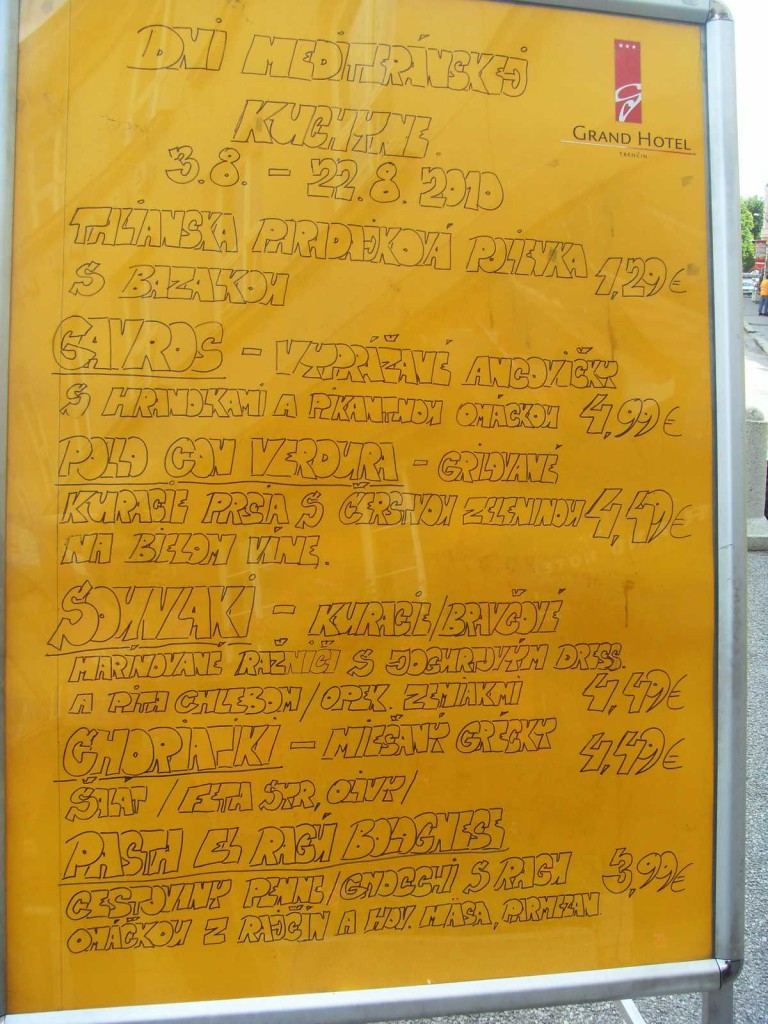 DNI MEDITERÁNSKEJ
KUCHYNE
3.8. - 22.8.2010
GRAND HOTEL
TRENČÍN
TALIANSKA PARADAJKOVÁ POLIEVKA
S BAZALKOU 1,29€
GAVROS - VYPRÁŽANÉ ANČOVIČKY
S HRANOLKAMI A PIKANTNOU OMÁČKOU 4,99€
POLLO CON VERDURA - GRILOVANÉ
KURACIE PRSIA S ČERSTVOU ZELENINOU 4,49€
NA BIELOM VÍNE.
SOUVLAKI - KURACIE/BRAVČOVÉ
MARINOVANÉ RAŽNIČI S JOGURTOVÝM DRESS.
A PITA CHLEBOM/OPEK. ZEMIAKMI 4,49€
CHORIATIKI - MIEŠANÝ GRÉCKY 4,49€
ŠALÁT /FETA SYR, OLIVY/
PASTA EL RAGÚ BOLOGNESE
CESTOVINY PENNE/GNOCCHI S RAGU 3,99€
OMÁČKOU Z RAJČÍN A HOV. MÄSA, PARMEZAN.